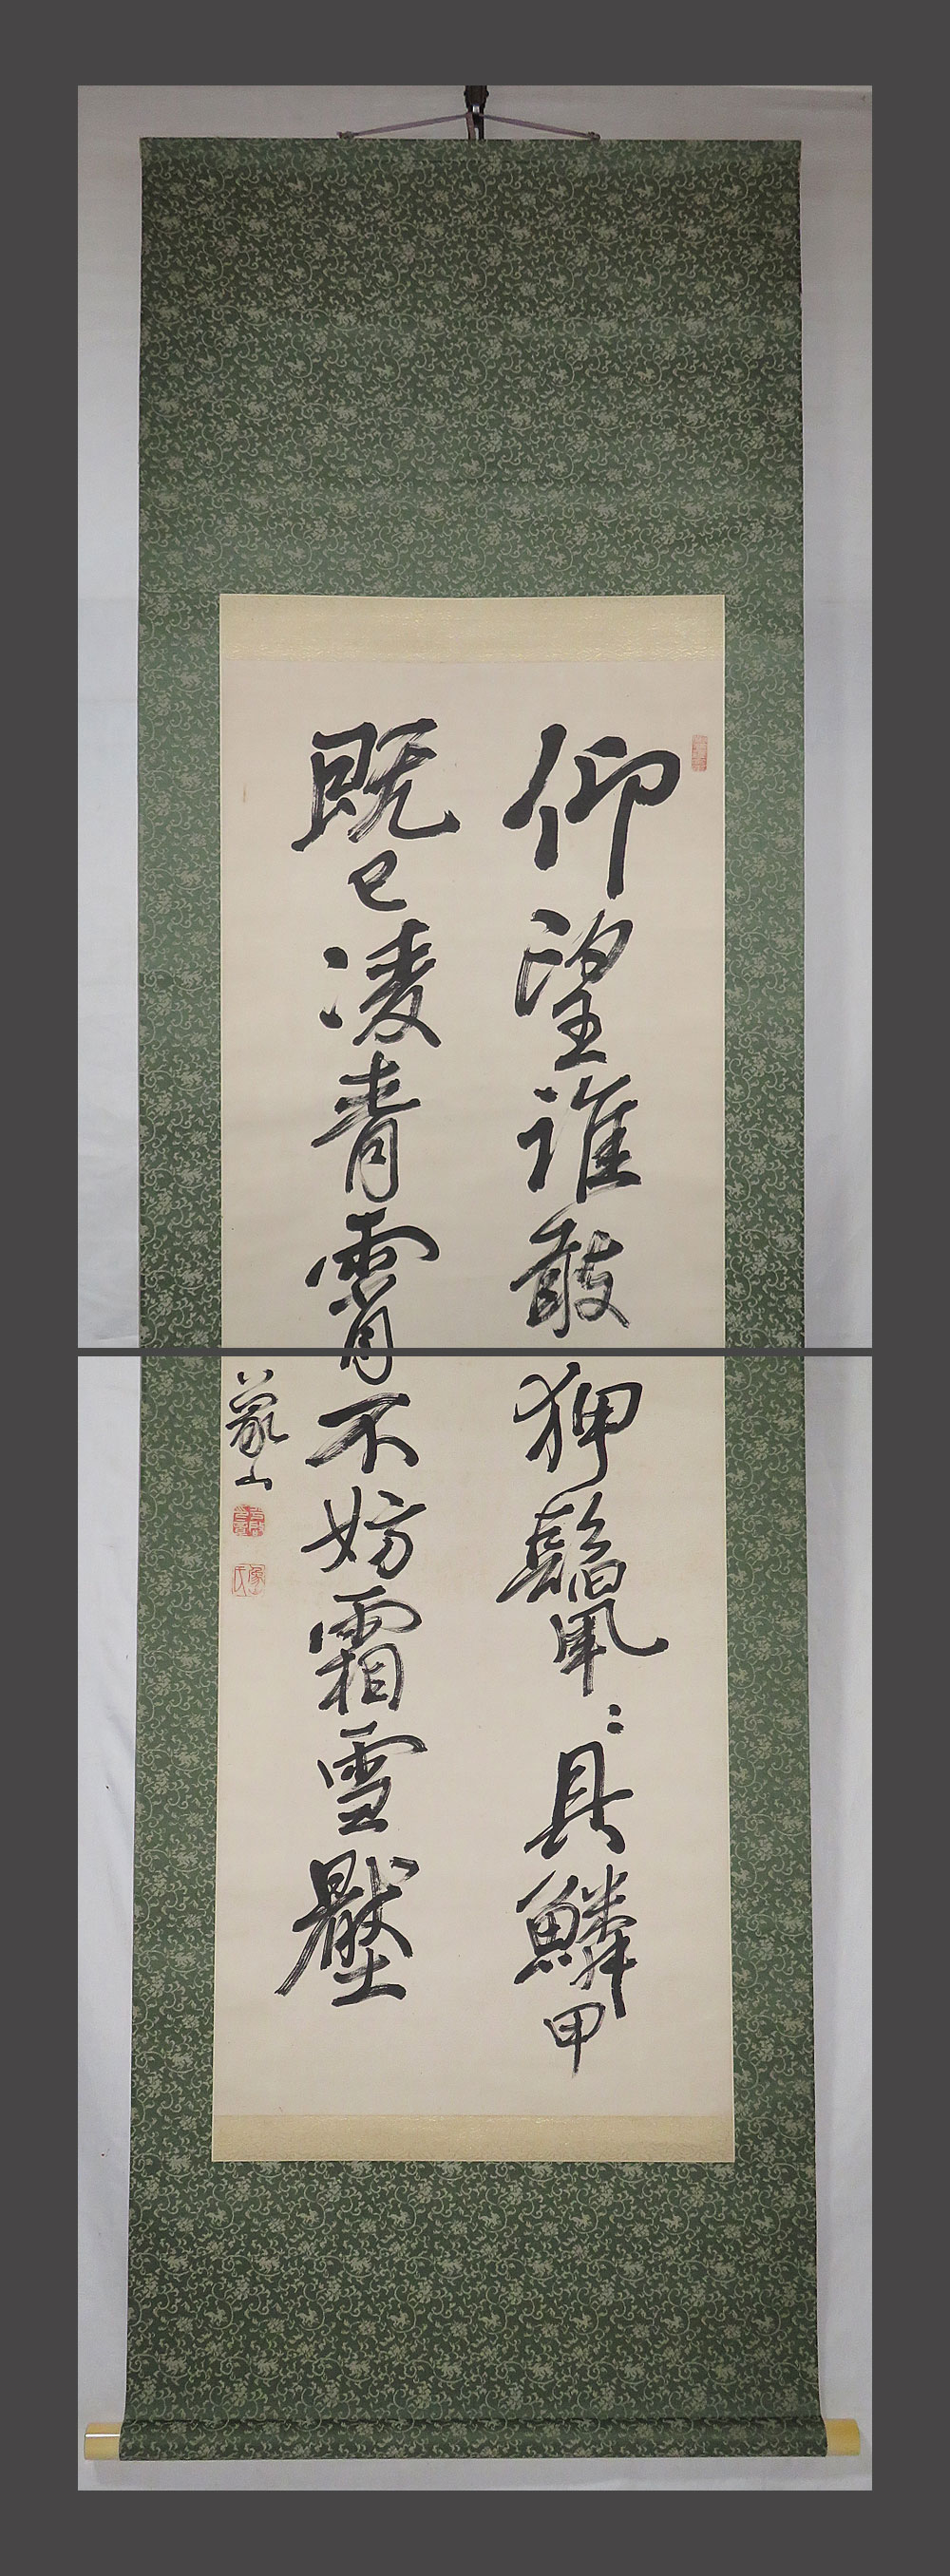 仰望誰敢狎鬣々具鱗甲
既已凌青霄不妨霜雪壓
蒙山